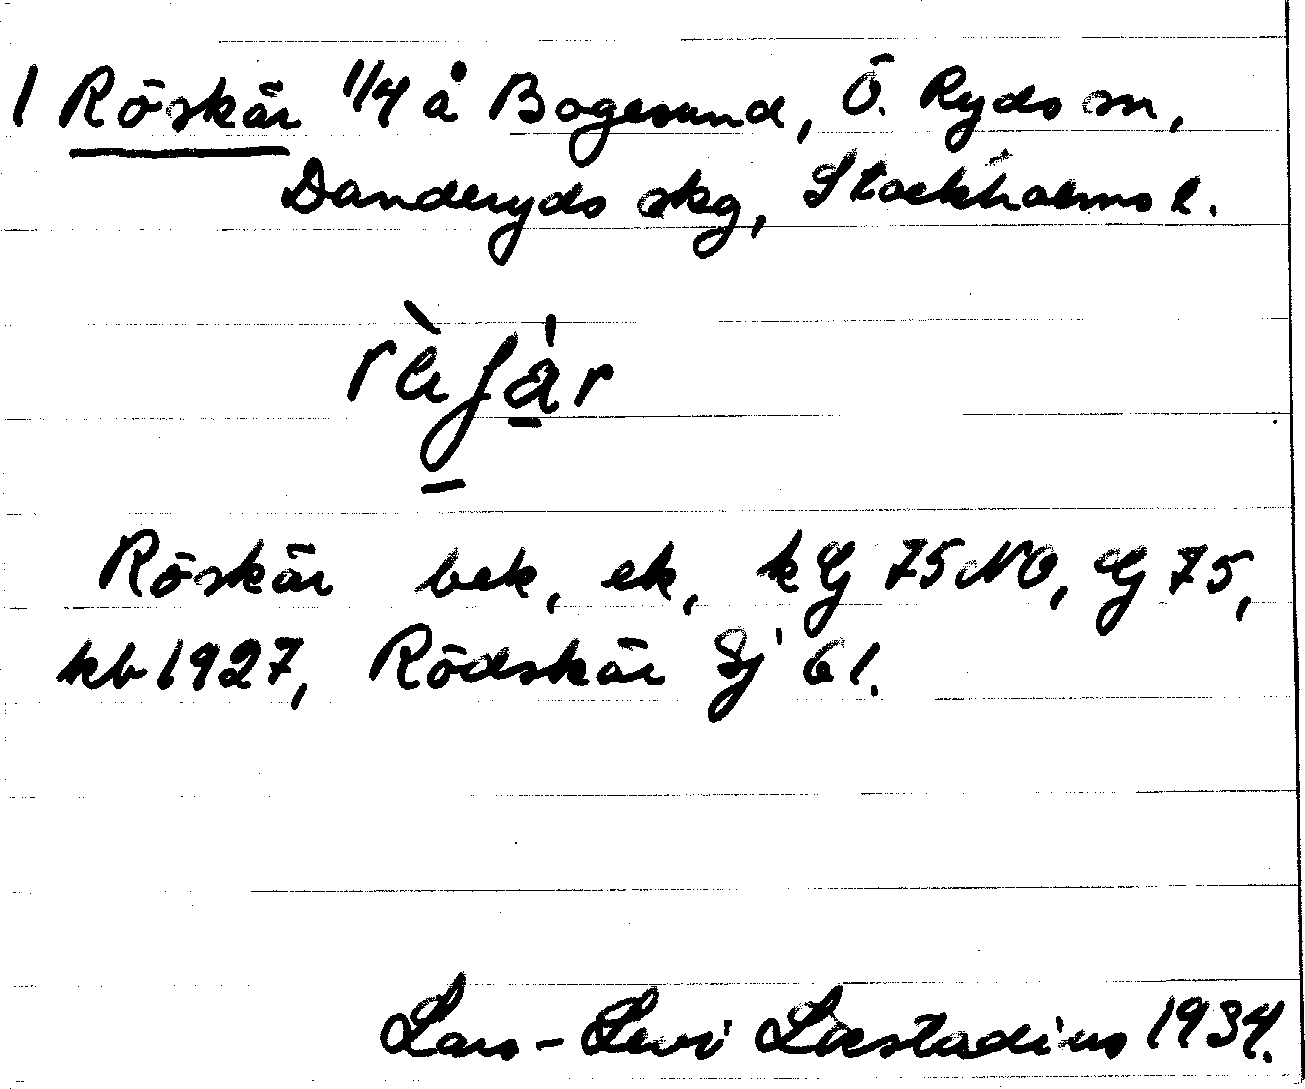 1 Röskär 1/4 å Bogesund, Ö. Ryds sn,
Danderyds skg, Stockholms l.
Röskär bek, ek, kG 75 NO, G 75,
kb 1927, Rödskär Sj 61.
Lars-Levi Læstadius 1934.